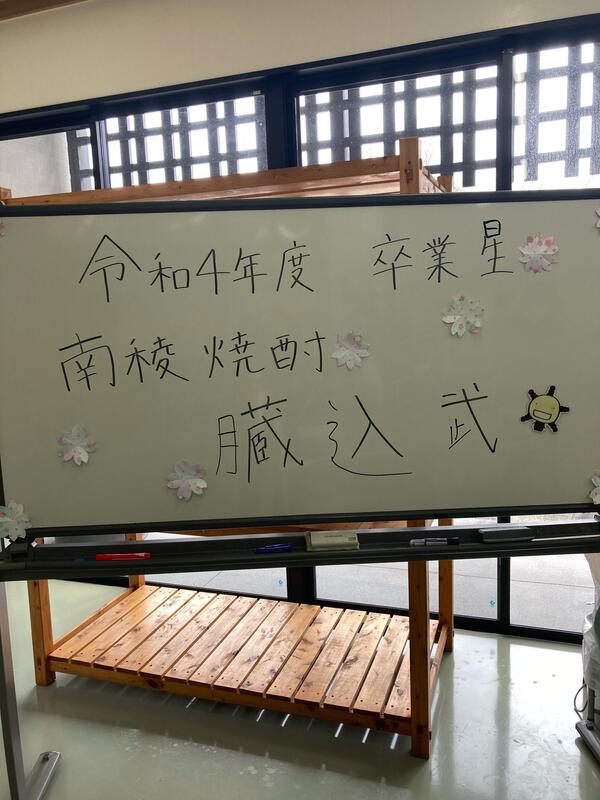 令和4年度 卒業星
南稜焼酎
臓込武